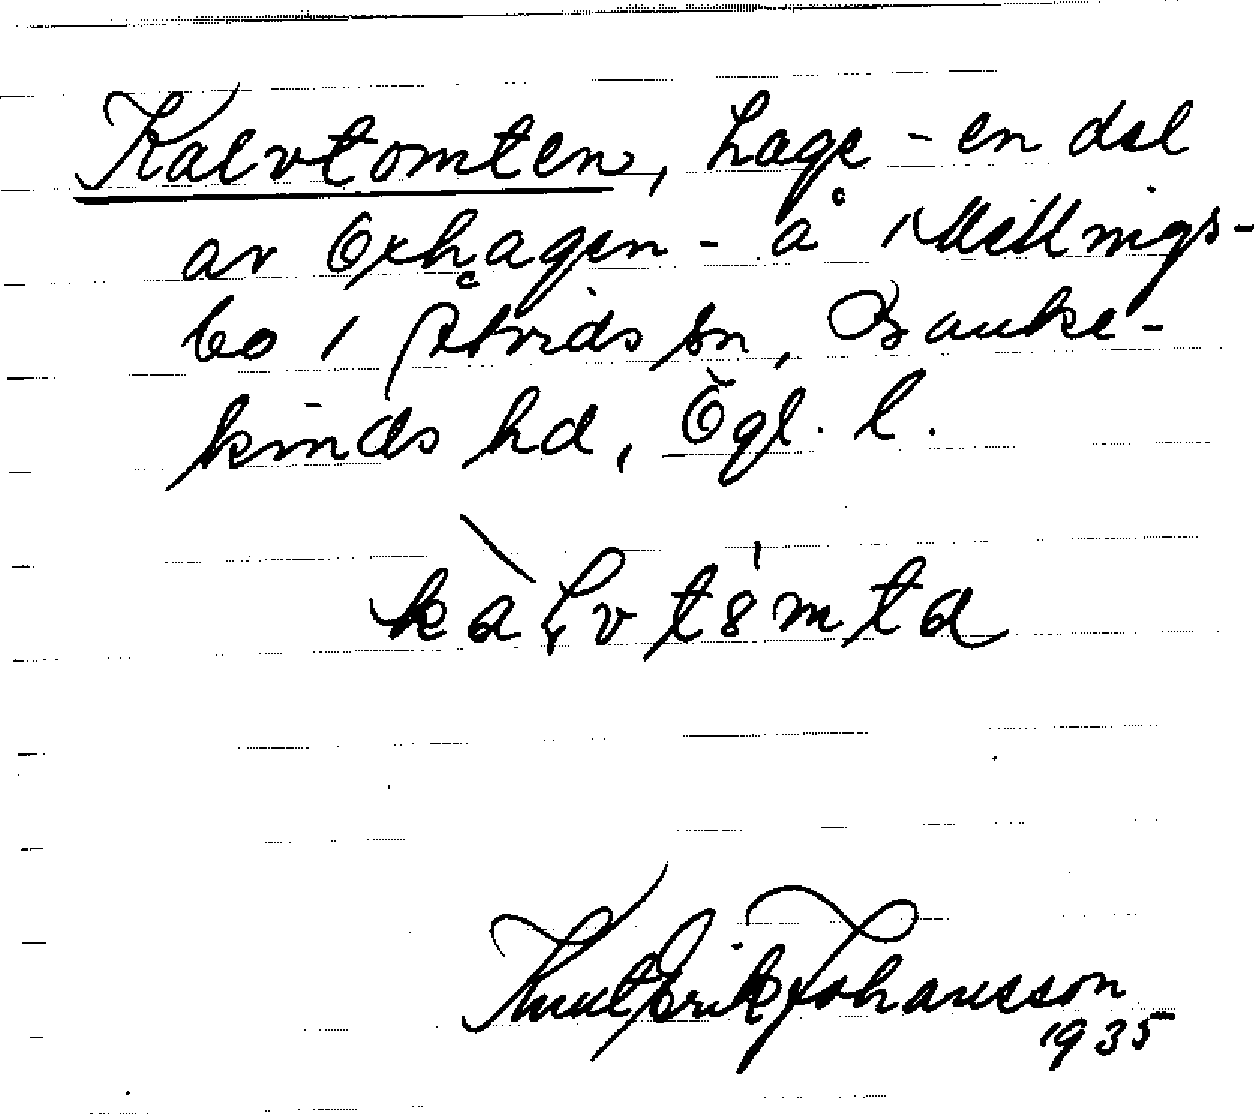 Kalvtomten, hage - en del
av Oxhagen - å Mellings-
bo i Åtvids sn, Banke-
kinds hd, Ögl. l.
Knut Erik Johansson
1935